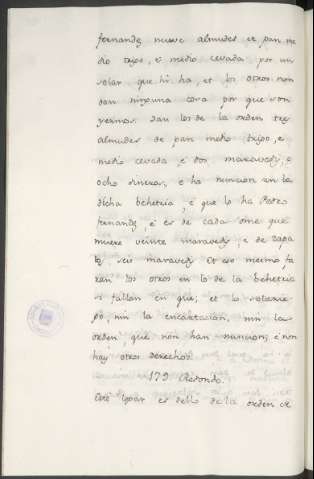 fernandez nueve almudes de pan me
dio trigo, e medio cevada, por un
solar que hi ha, et los otros non
dan ninguna cosa por que son
yermos. dan los de la orden tres
almudes de pan medio trigo, e
medio cevada, e dos maravedis, e
ocho dineros, e ha nuncion en la
dicha behetria, e que lo ha Pedro
fernandez, e es de cada ome que
muere veinte maravedis, e de zapa
tos seis maravedis. et eso mesmo fa
ran los otros en lo de la behetria
si fallan en que; et lo solarie
go, nin la encartacion, nin la
orden, que non han nuncion, e non
hay otros derechos.
179 Redondo.
Este logar es dello de la orden de